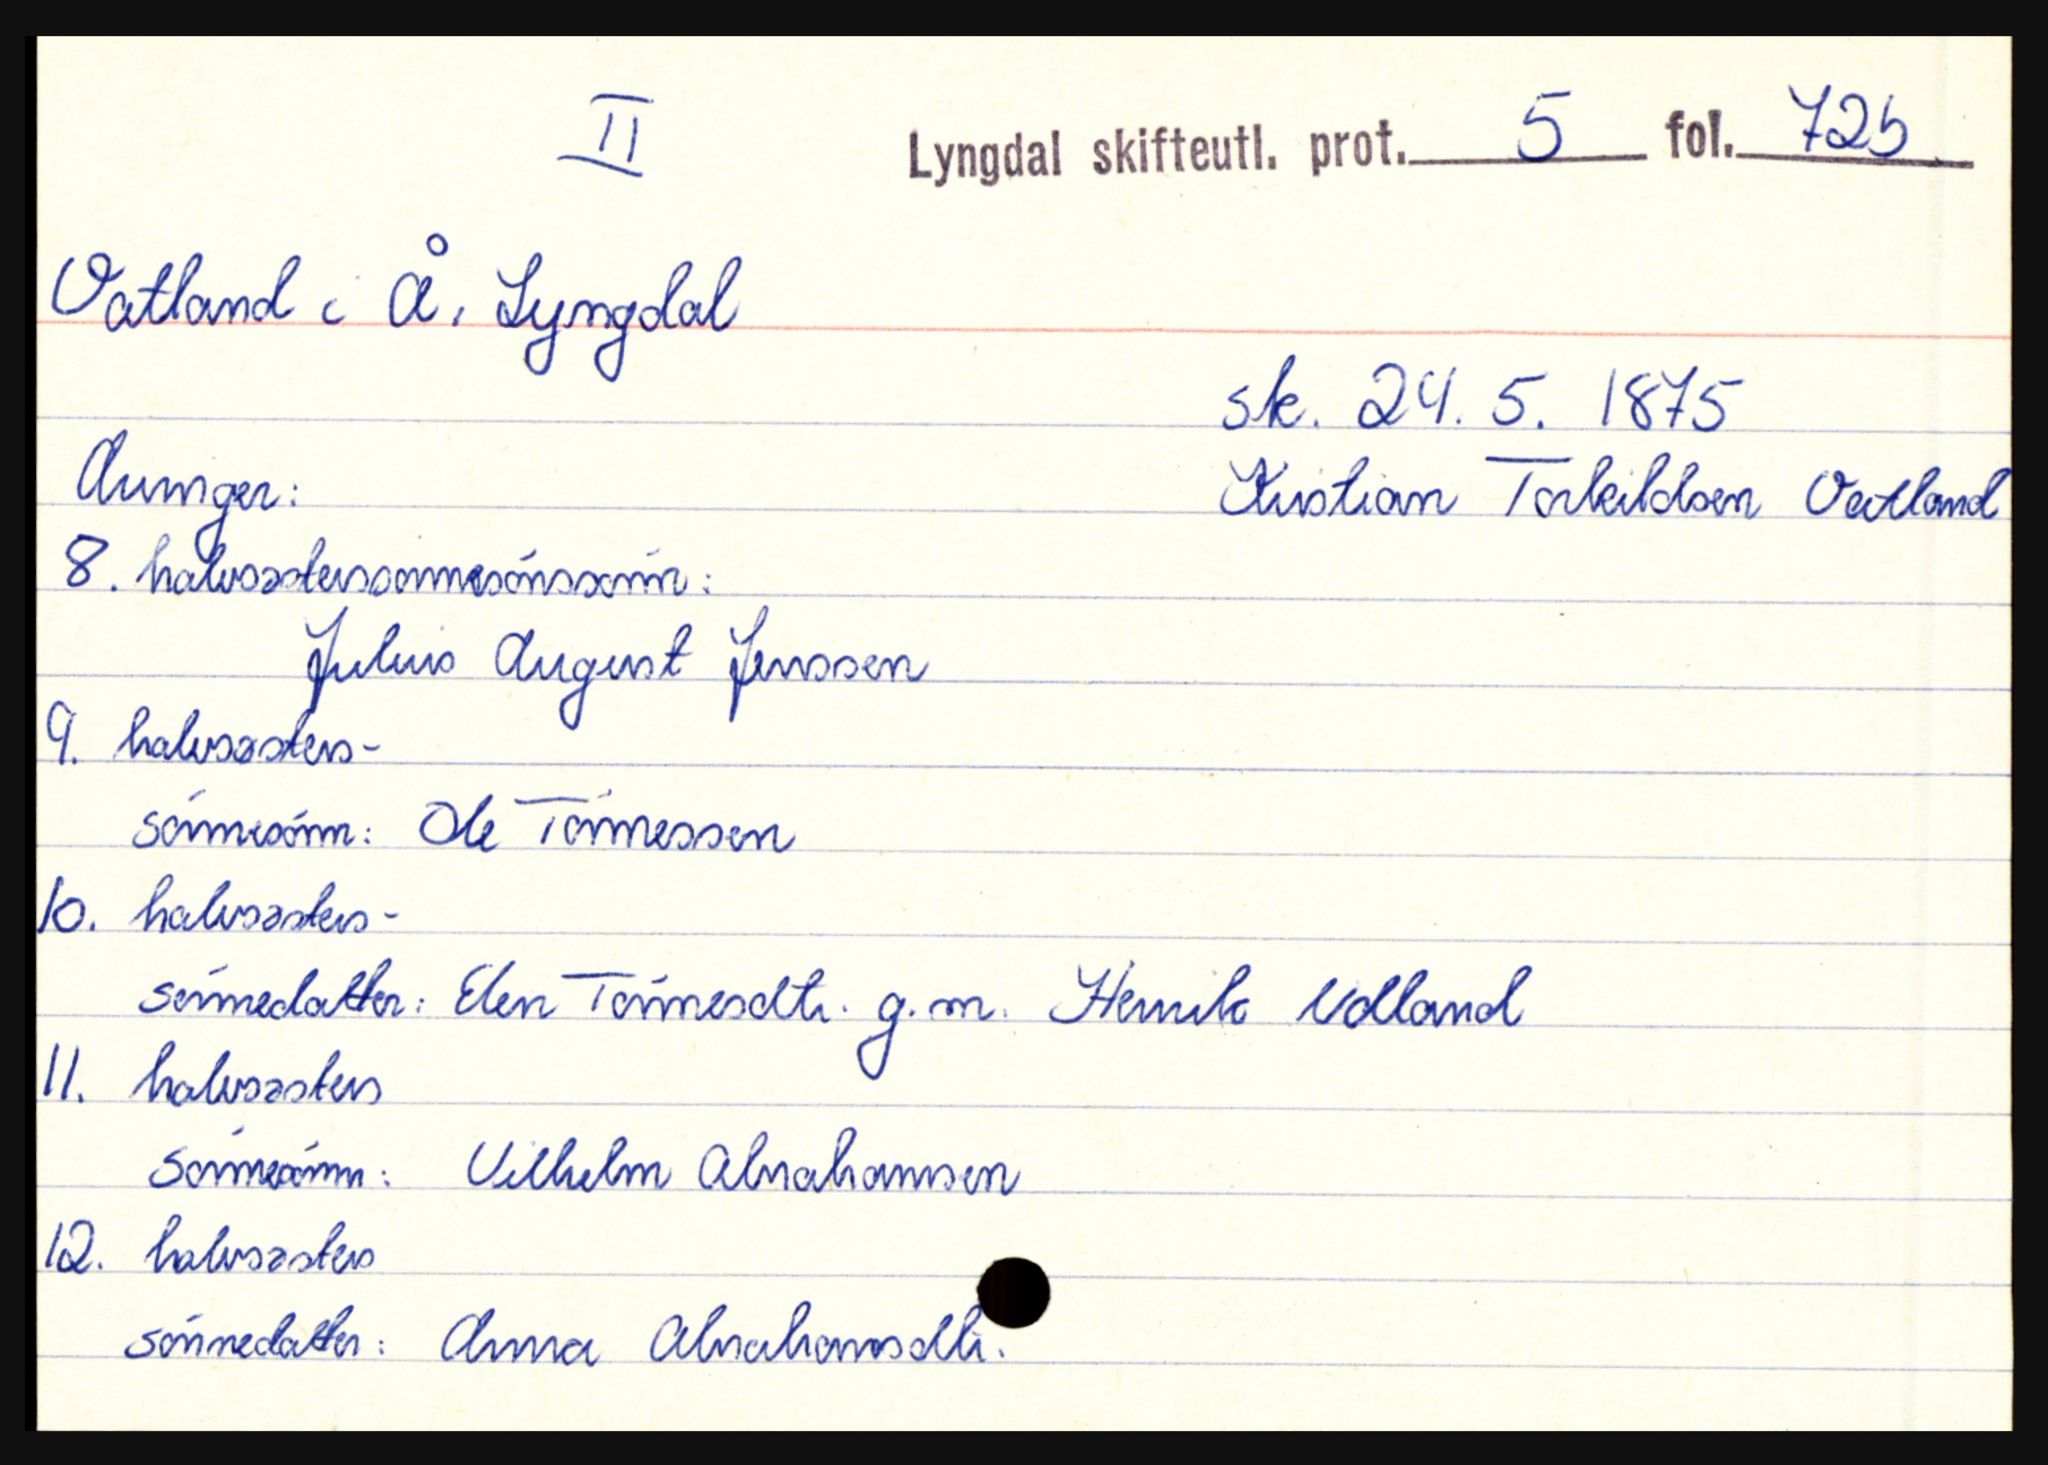 II
Lyngdal skifteutl. prot. 5 fol. 72b
Vatland i Å, Lyngdal
sk. 24. 5. 1875
Arvinger:
Kristian Torkildsen Vatland
8. halvsøsterssønnesønssønn:
Julius August Jenssen
9. halvsøsters-
sønnesønn: Ole Tønnessen
10. halvsøsters-
sønnedatter: Elen Tønnesdtr. g.m. Henrik Udland
11. halvsøsters
sønnesønn: Vilhelm Abrahamsen
12. halvsøsters
sønnedatter: Anna Abrahamsdtr.